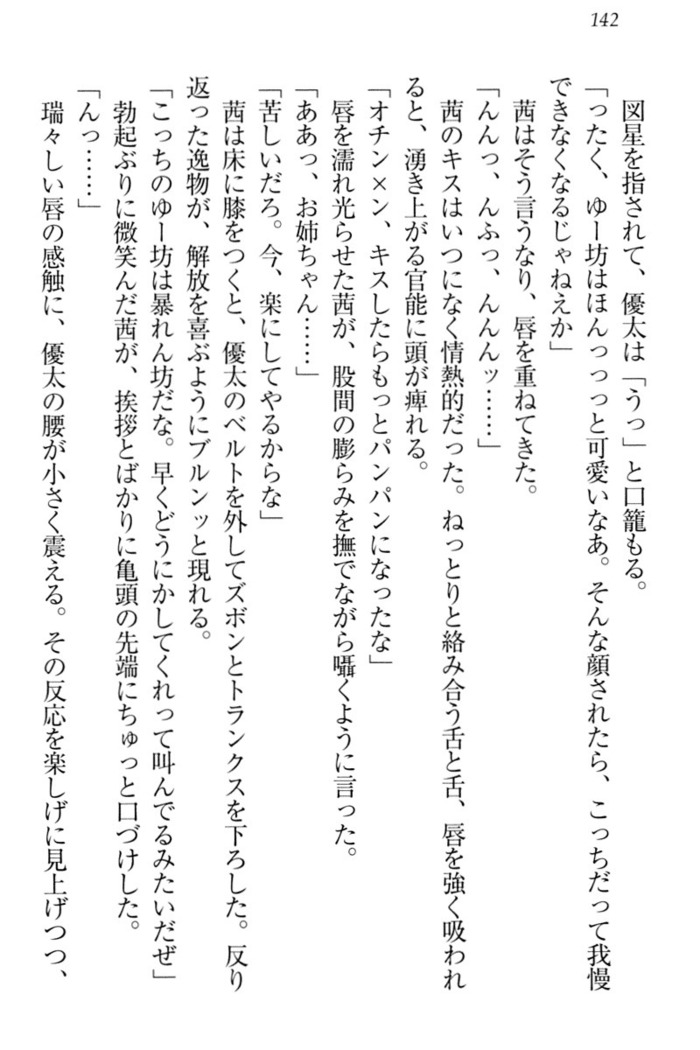 142
図星を指されて、優太は「うっ」と口籠もる。
「ったく、ゆー坊はほんっっっと可愛いなあ。そんな顔されたら、こっちだって我慢
できなくなるじゃねえか」
茜はそう言うなり、唇を重ねてきた。
「んんっ、んふっ、んんんッ……」
茜のキスはいつになく情熱的だった。ねっとりと絡み合う舌と舌、唇を強く吸われ
ると、湧き上がる官能に頭が痺れる。
「オチン×ン、キスしたらもっとパンパンになったな」
唇を濡れ光らせた茜が、股間の膨らみを撫でながら囁くように言った。
「ああっ、お姉ちゃん……」
「苦しいだろ。今、楽にしてやるからな」
茜は床に膝をつくと、優太のベルトを外してズボンとトランクスを下ろした。反り
返った逸物が、解放を喜ぶようにブルンッと現れる。
「こっちのゆー坊は暴れん坊だな。早くどうにかしてくれって叫んでるみたいだぜ」
勃起ぶりに微笑んだ茜が、挨拶とばかりに亀頭の先端にちゅっと口づけした。
「んっ……」
瑞々しい唇の感触に、優太の腰が小さく震える。その反応を楽しげに見上げつつ、